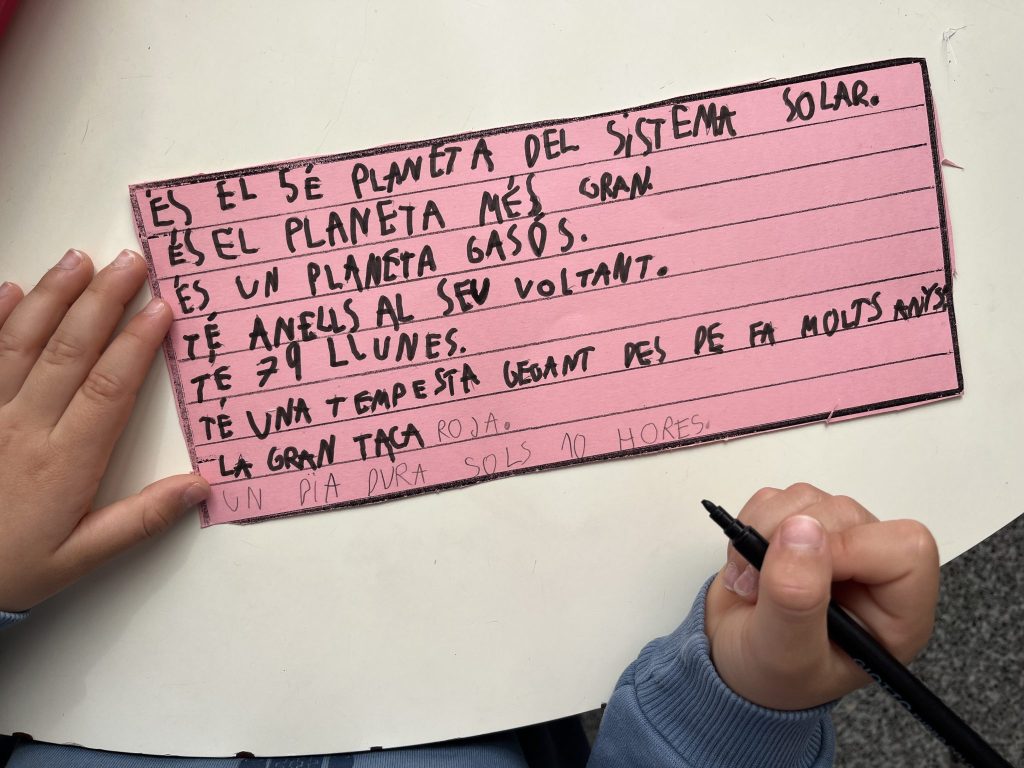 ÉS EL 5É PLANETA DEL SISTEMA SOLAR.
ÉS EL PLANETA MÉS GRAN.
ÉS UN PLANETA GASÓS.
TÉ ANELLS AL SEU VOLTANT.
TÉ 79 LLUNES.
TÉ UNA TEMPESTA GEGANT DES DE FA MOLTS ANYS:
LA GRAN TACA ROJA.
UN DIA DURA SOLS 10 HORES.